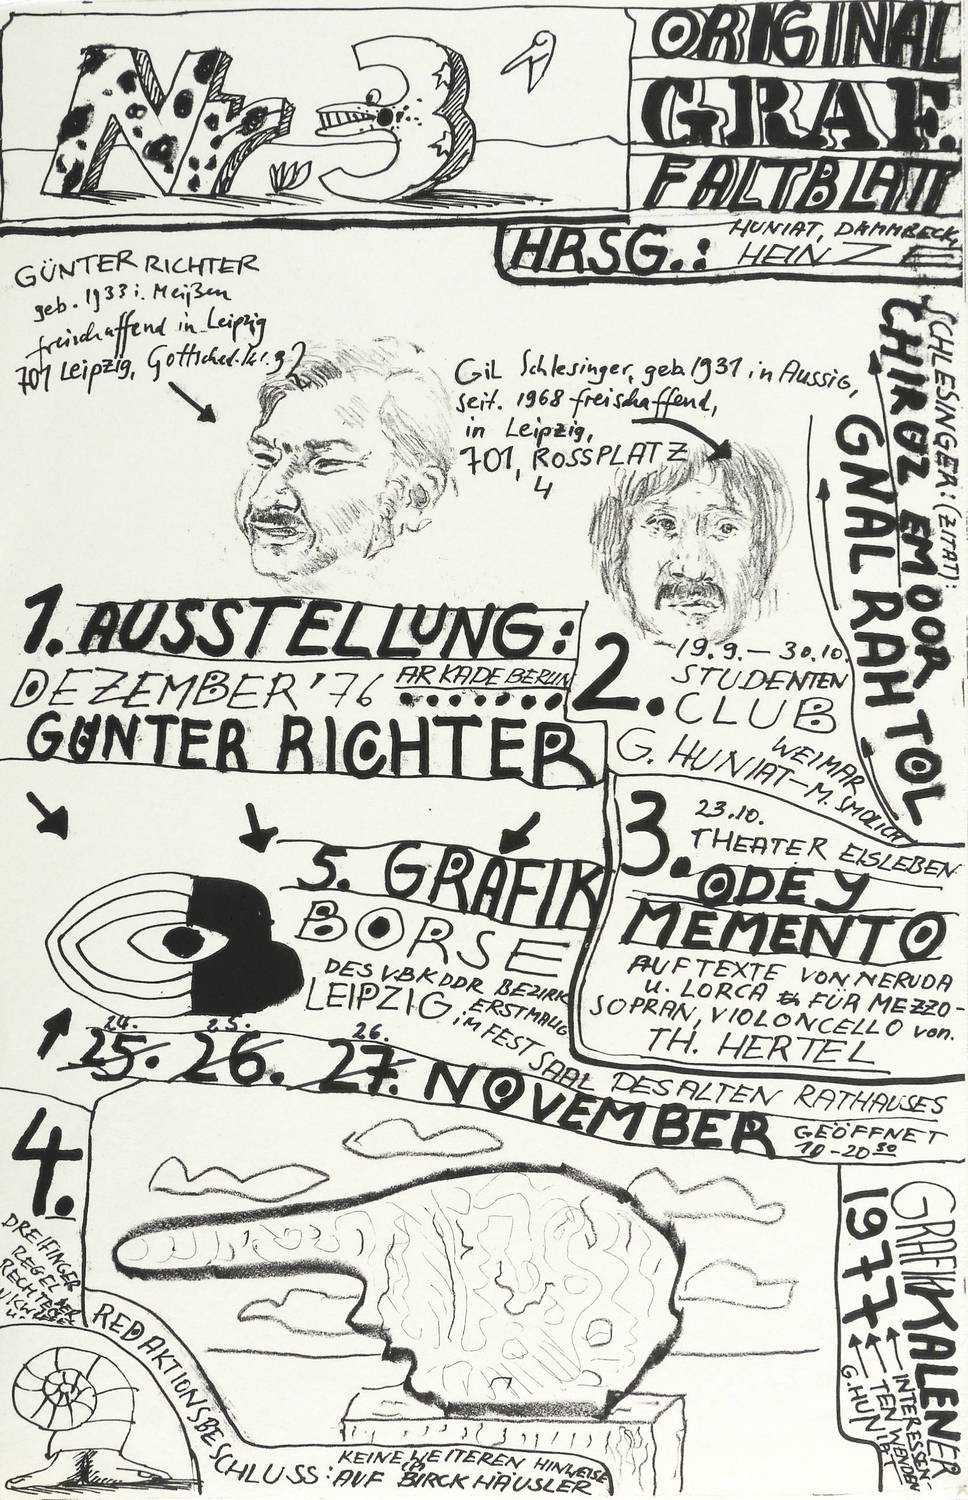 Nr 3
ORIGINAL
GRAF.
FALTBLATT
HRSG.:
HUNIAT, DAMMBECK,
HEINZ
GÜNTER RICHTER
geb. 1933 i. Meißen
freischaffend in Leipzig
701 Leipzig, Gottsched.str. 92
Gil Schlesinger, geb. 1931 in Aussig,
seit. 1968 freischaffend,
in Leipzig,
701, ROSSPLATZ
4
SCHLESINGER: (ZITAT):
CHIROZ EMOOR
GNAL RAH TOL
1. AUSSTELLUNG:
DEZEMBER '76 ARKADE BERLIN
GÜNTER RICHTER
2. 19.9. – 30.10.
STUDENTEN
CLUB
WEIMAR
G. HUNIAT – M. SMOLICH
3. 23.10.
THEATER EISLEBEN
ODE Y
MEMENTO
AUF TEXTE VON NERUDA
U. LORCA FÜR MEZZO-
SOPRAN, VIOLONCELLO von.
TH. HERTEL
5. GRAFIK
BÖRSE
DES VBKDDR BEZIRK
LEIPZIG ERSTMALIG
im FESTSAAL DES ALTEN RATHAUSES
24. 25. 26.
25. 26. 27. NOVEMBER
GEÖFFNET
10 – 20 30
4.
DREIFINGER
REGEL DER
RECHTEGEL
REDAKTIONSBESCHLUSS:
KEINE WEITEREN HINWEISE
AUF BIRCKHÄUSLER
GRAFIKKALENER
1977
INTERESSEN-
TEN WENDEN
G. HUNIAT